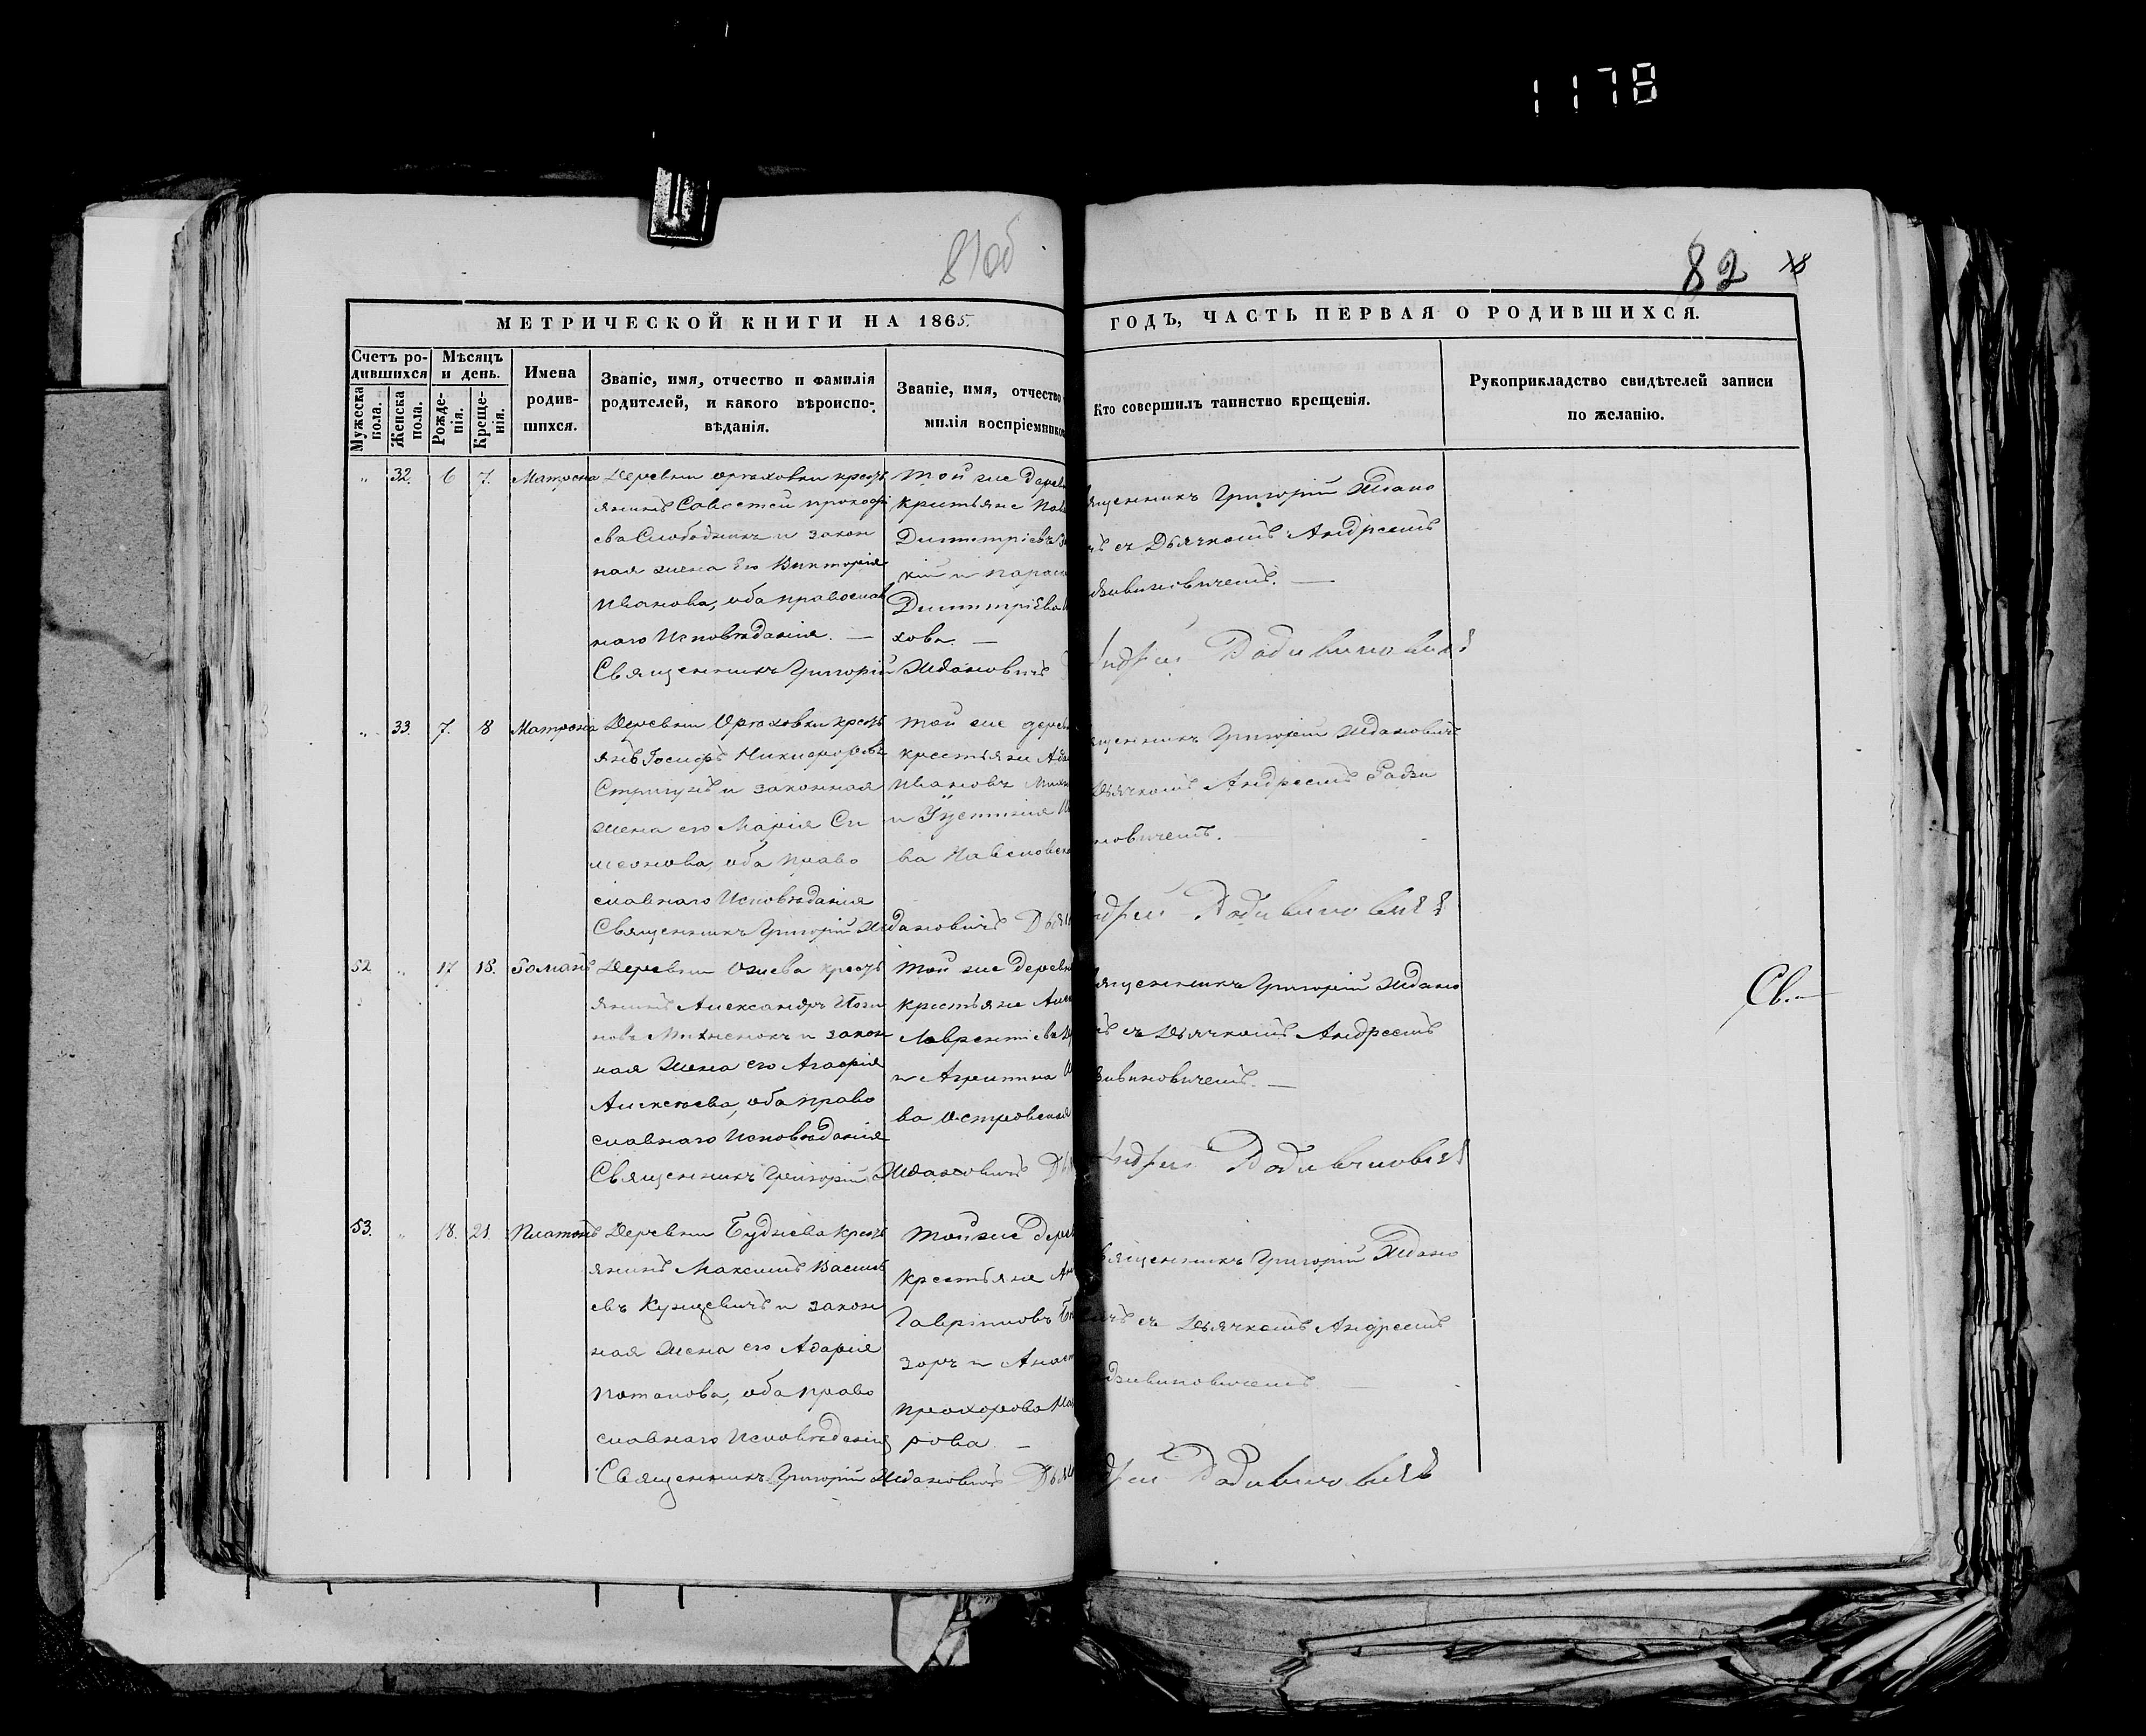 1178
81об
82
МЕТРИЧЕСКОЙ КНИГИ НА 1865.
ГОДЪ, ЧАСТЬ ПЕРВАЯ О РОДИВШИХСЯ.
Счетъ ро-
дившихся
Мужеска
пола.
Женска
пола.
Мѣсяцъ
и день.
Рожде-
нія.
Креще-
нія.
Имена
родив-
шихся.
Званіе, имя, отчество и фамилія
родителей, и какого вѣроиспо-
вѣданія.
Званіе, имя, отчество
милія воспріемниковъ
Кто совершилъ таинство крещенія.
Рукоприкладство свидѣтелей записи
по желанію.
" 32. 6 7. Матрона
Деревни Ортаховки крест
янинъ Савастей Прокофі
ева Слободникъ и закон
ная жена его Викторія
Иванова, оба православ
наго Исповѣданія. —
Священникъ Григорій Ждановичъ
Той же дерев
крестьяне
Димитріевъ
кій и Параск
Димитріева
хова —
ященникъ Григорій Ждано
чъ съ Дьячкомъ Андреемъ
дзивиновичемъ. —
Андрей Радзивиновичъ
" 33. 7. 8 Матрона
Деревни Ортаховки крест
янъ Іосифъ Никифоровъ
Стригунъ и законная
жена его Марія Си
меонова, оба право
славнаго Исповѣданія
Священникъ Григорій Ждановичъ Дьяч
Той же дерев
крестьяне
Ивановъ
и Іустинія
ва
ященникъ Григорій Ждановичъ
Дьячкомъ Андреемъ Радзи
новичемъ.
Андрей Радзивиновичъ
52 " 17 18. Романъ
Деревни Ожева крест
янинъ Александръ
новъ Михненокъ и закон
ная жена его Агафія
Алексѣева, оба право
славнаго Исповѣданія
Священникъ Григорій Ждановичъ
Той же дерев
крестьяне
Лаврентіевъ
и Агриппина
ва Островская
ященникъ Григорій Ждано
чъ съ Дьячкомъ Андреемъ
зивиновичемъ. —
Андрей Радзивиновичъ
Св.—
53. " 18. 21. Платонъ
Деревни Буднева крест
янинъ Максимъ Василь
евъ Кунцевичъ и закон
ная жена его Адарія
Потапова, оба право
славнаго Исповѣданія
Священникъ Григорій Ждановичъ Дьяч
Той же дерев
крестьяне
Гавріиловъ
заръ и Анаст
Прохорова
рова —
вященникъ Григорій Ждано
ичъ съ Дьячкомъ Андреемъ
дзивиновичемъ —
Андрей Радзивиновичъ